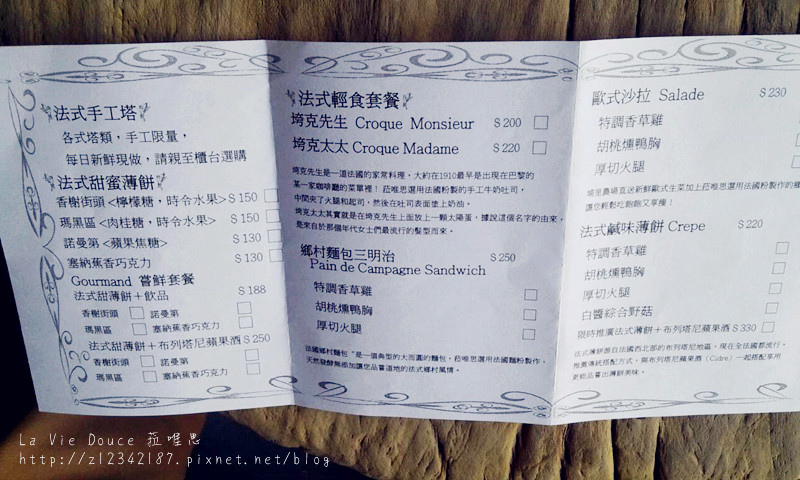 法式手工塔
各式塔類，手工限量，
每日新鮮現做，請親至櫃台選購
法式甜蜜薄餅
香榭街頭<檸檬糖，時令水果> $150
瑪黑區<肉桂糖，時令水果> $150
諾曼第<蘋果焦糖> $130
塞納蕉香巧克力 $130
Gourmand 嘗鮮套餐
法式甜薄餅＋飲品 $188
香榭街頭 諾曼第
瑪黑區 塞納蕉香巧克力
法式甜薄餅＋布列塔尼蘋果酒 $250
香榭街頭 諾曼第
瑪黑區 塞納蕉香巧克力
法式輕食套餐
埼克先生 Croque Monsieur $200
埼克太太 Croque Madame $220
埼克先生是一道法國的家常料理，大約在1910最早是出現在巴黎的
某一家咖啡廳的菜單裡！菈唯思選用法國粉製的手工牛奶吐司，
中間夾了火腿和起司，然後在吐司表面塗上奶油。
埼克太太其實就是在埼克先生上面放上一顆太陽蛋，據說這個名字的由來，
是來自於那個年代女士們最流行的髮型而來。
鄉村麵包三明治 $250
Pain de Campagne Sandwich
特調香草雞
胡桃燻鴨胸
厚切火腿
法國鄉村麵包"是一個典型的大而圓的麵包，菈唯思選用法國麵粉製作。
天然發酵無添加讓您品嘗道地的法式鄉村風情。
歐式沙拉 Salade $230
特調香草雞
胡桃燻鴨胸
厚切火腿
埔里農場直送新鮮歐式生菜加上菈唯思選用法國粉製作的鄉
讓您輕鬆吃飽飽又享瘦！
法式鹹味薄餅 Crepe $220
特調香草雞
胡桃燻鴨胸
厚切火腿
白醬綜合野菇
限時推廣法式薄餅＋布列塔尼蘋果酒 $330
法式薄餅源自法國西北部的布列塔尼地區，現在全法國都流行。
推薦傳統搭配方式，與布列塔尼蘋果酒 (Cidre) 一起搭配享用
更能品嘗出薄餅美味。
La Vie Douce 菈唯思
http://z12342187.pixnet.net/blog